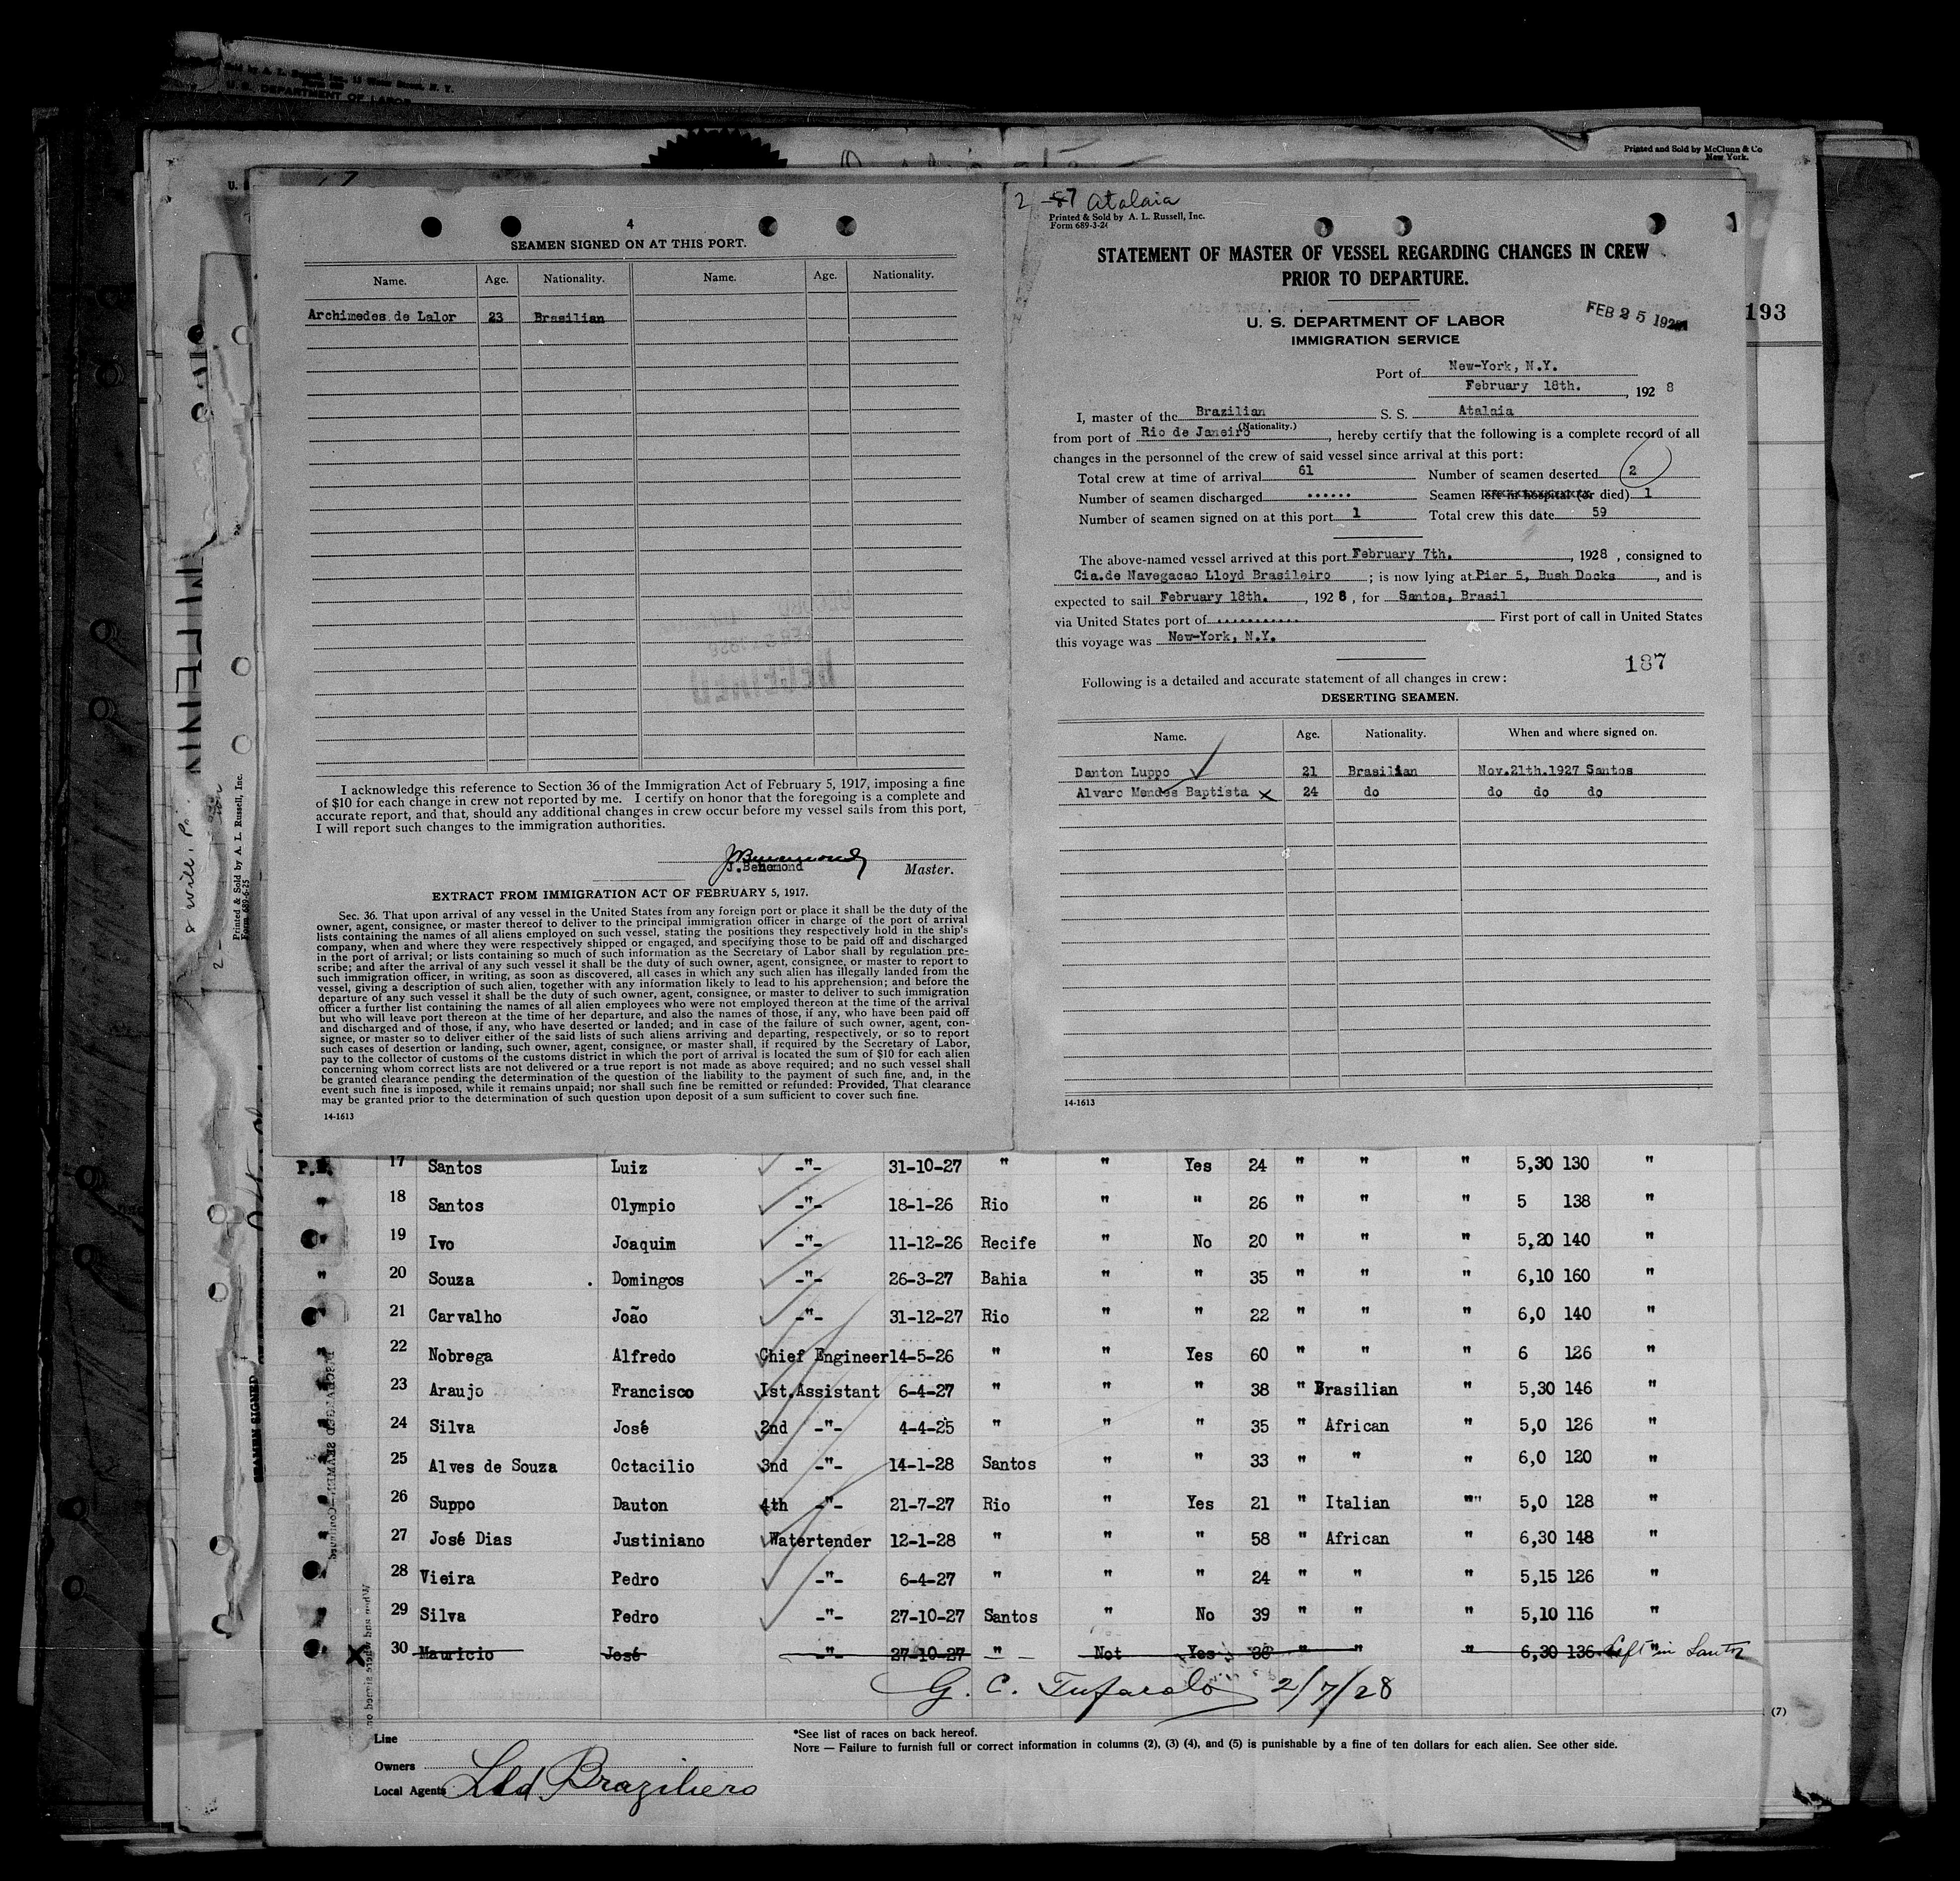 Sold by A. L. Russell, Inc.
U. S. DEPARTMENT OF LABOR
Printed and Sold by McClunn & Co
New York.
193
4
SEAMEN SIGNED ON AT THIS PORT.
Name. Age. Nationality. Name. Age. Nationality.
Archimedes de Lalor 23 Brasilian
I acknowledge this reference to Section 36 of the Immigration Act of February 5, 1917, imposing a fine
of $10 for each change in crew not reported by me. I certify on honor that the foregoing is a complete and
accurate report, and that, should any additional changes in crew occur before my vessel sails from this port,
I will report such changes to the immigration authorities.
Master.
EXTRACT FROM IMMIGRATION ACT OF FEBRUARY 5, 1917.
Sec. 36. That upon arrival of any vessel in the United States from any foreign port or place it shall be the duty of the
owner, agent, consignee, or master thereof to deliver to the principal immigration officer in charge of the port of arrival
lists containing the names of all aliens employed on such vessel, stating the positions they respectively hold in the ship's
company, when and where they were respectively shipped or engaged, and specifying those to be paid off and discharged
in the port of arrival; or lists containing so much of such information as the Secretary of Labor shall by regulation pre-
scribe; and after the arrival of any such vessel it shall be the duty of such owner, agent, consignee, or master to report to
such immigration officer, in writing, as soon as discovered, all cases in which any such alien has illegally landed from the
vessel, giving a description of such alien, together with any information likely to lead to his apprehension; and before the
departure of any such vessel it shall be the duty of such owner, agent, consignee, or master to deliver to such immigration
officer a further list containing the names of all alien employees who were not employed thereon at the time of the arrival
but who will leave port thereon at the time of her departure, and also the names of those, if any, who have been paid off
and discharged and of those, if any, who have deserted or landed; and in case of the failure of such owner, agent, con-
signee, or master so to deliver either of the said lists of such aliens arriving and departing, respectively, or so to report
such cases of desertion or landing, such owner, agent, consignee, or master shall, if required by the Secretary of Labor,
pay to the collector of customs of the customs district in which the port of arrival is located the sum of $10 for each alien
concerning whom correct lists are not delivered or a true report is not made as above required; and no such vessel shall
be granted clearance pending the determination of the question of the liability to the payment of such fine, and, in the
event such fine is imposed, while it remains unpaid; nor shall such fine be remitted or refunded: Provided, That clearance
may be granted prior to the determination of such question upon deposit of a sum sufficient to cover such fine.
14-1613
2 -87 Atalaia
Printed & Sold by A. L. Russell, Inc.
Form 689-3-24
STATEMENT OF MASTER OF VESSEL REGARDING CHANGES IN CREW
PRIOR TO DEPARTURE.
FEB 25 192
U. S. DEPARTMENT OF LABOR
IMMIGRATION SERVICE
Port of New-York, N.Y.
February 18th. , 1928
I, master of the Brazilian S. S. Atalaia
(Nationality.)
from port of Rio de Janeiro , hereby certify that the following is a complete record of all
changes in the personnel of the crew of said vessel since arrival at this port:
Total crew at time of arrival 61 Number of seamen deserted 2
Number of seamen discharged ...... Seamen left in hospital (or died) 1
Number of seamen signed on at this port 1 Total crew this date 59
The above-named vessel arrived at this port February 7th. , 1928 , consigned to
Cia.de Navegacao Lloyd Brasileiro ; is now lying at Pier 5, Bush Docks , and is
expected to sail February 18th. , 1928 , for Santos, Brasil
via United States port of ........... First port of call in United States
this voyage was New-York, N.Y.
187
Following is a detailed and accurate statement of all changes in crew:
DESERTING SEAMEN.
Name. Age. Nationality. When and where signed on.
Danton Luppo 21 Brasilian Nov.21th.1927 Santos
Alvaro Mendes Baptista x 24 do do do do
14-1613
Printed & Sold by A. L. Russell, Inc.
Form 689-6-25
SEAMEN SIGNED
17 Santos Luiz -"- 31-10-27 " " Yes 24 " " " 5,30 130 "
" 18 Santos Olympio -"- 18-1-26 Rio " " 26 " " " 5 138 "
19 Ivo Joaquim -"- 11-12-26 Recife " No 20 " " " 5,20 140 "
" 20 Souza . Domingos -"- 26-3-27 Bahia " " 35 " " " 6,10 160 "
21 Carvalho João -"- 31-12-27 Rio " " 22 " " " 6,0 140 "
" 22 Nobrega Alfredo Chief Engineer 14-5-26 " " Yes 60 " " " 6 126 "
" 23 Araujo Francisco Ist.Assistant 6-4-27 " " " 38 " Brasilian " 5,30 146 "
" 24 Silva José 2nd -"- 4-4-25 " " " 35 " African " 5,0 126 "
" 25 Alves de Souza Octacilio 3nd -"- 14-1-28 Santos " " 33 " " " 6,0 120 "
" 26 Suppo Dauton 4th -"- 21-7-27 Rio " Yes 21 " Italian "" 5,0 128 "
" 27 José Dias Justiniano Watertender 12-1-28 " " " 58 " African " 6,30 148 "
28 Vieira Pedro -"- 6-4-27 " " " 24 " " " 5,15 126 "
" 29 Silva Pedro -"- 27-10-27 Santos " No 39 " " " 5,10 116 "
X 30 Mauricio José -"- 27-10-27 " Not Yes 36 " " " 6,30 136 " Left in Santos
G. C. Tufarolo 2/7/28
(7)
Line
Owners
Local Agents Lld Braziliero
*See list of races on back hereof.
NOTE — Failure to furnish full or correct information in columns (2), (3) (4), and (5) is punishable by a fine of ten dollars for each alien. See other side.